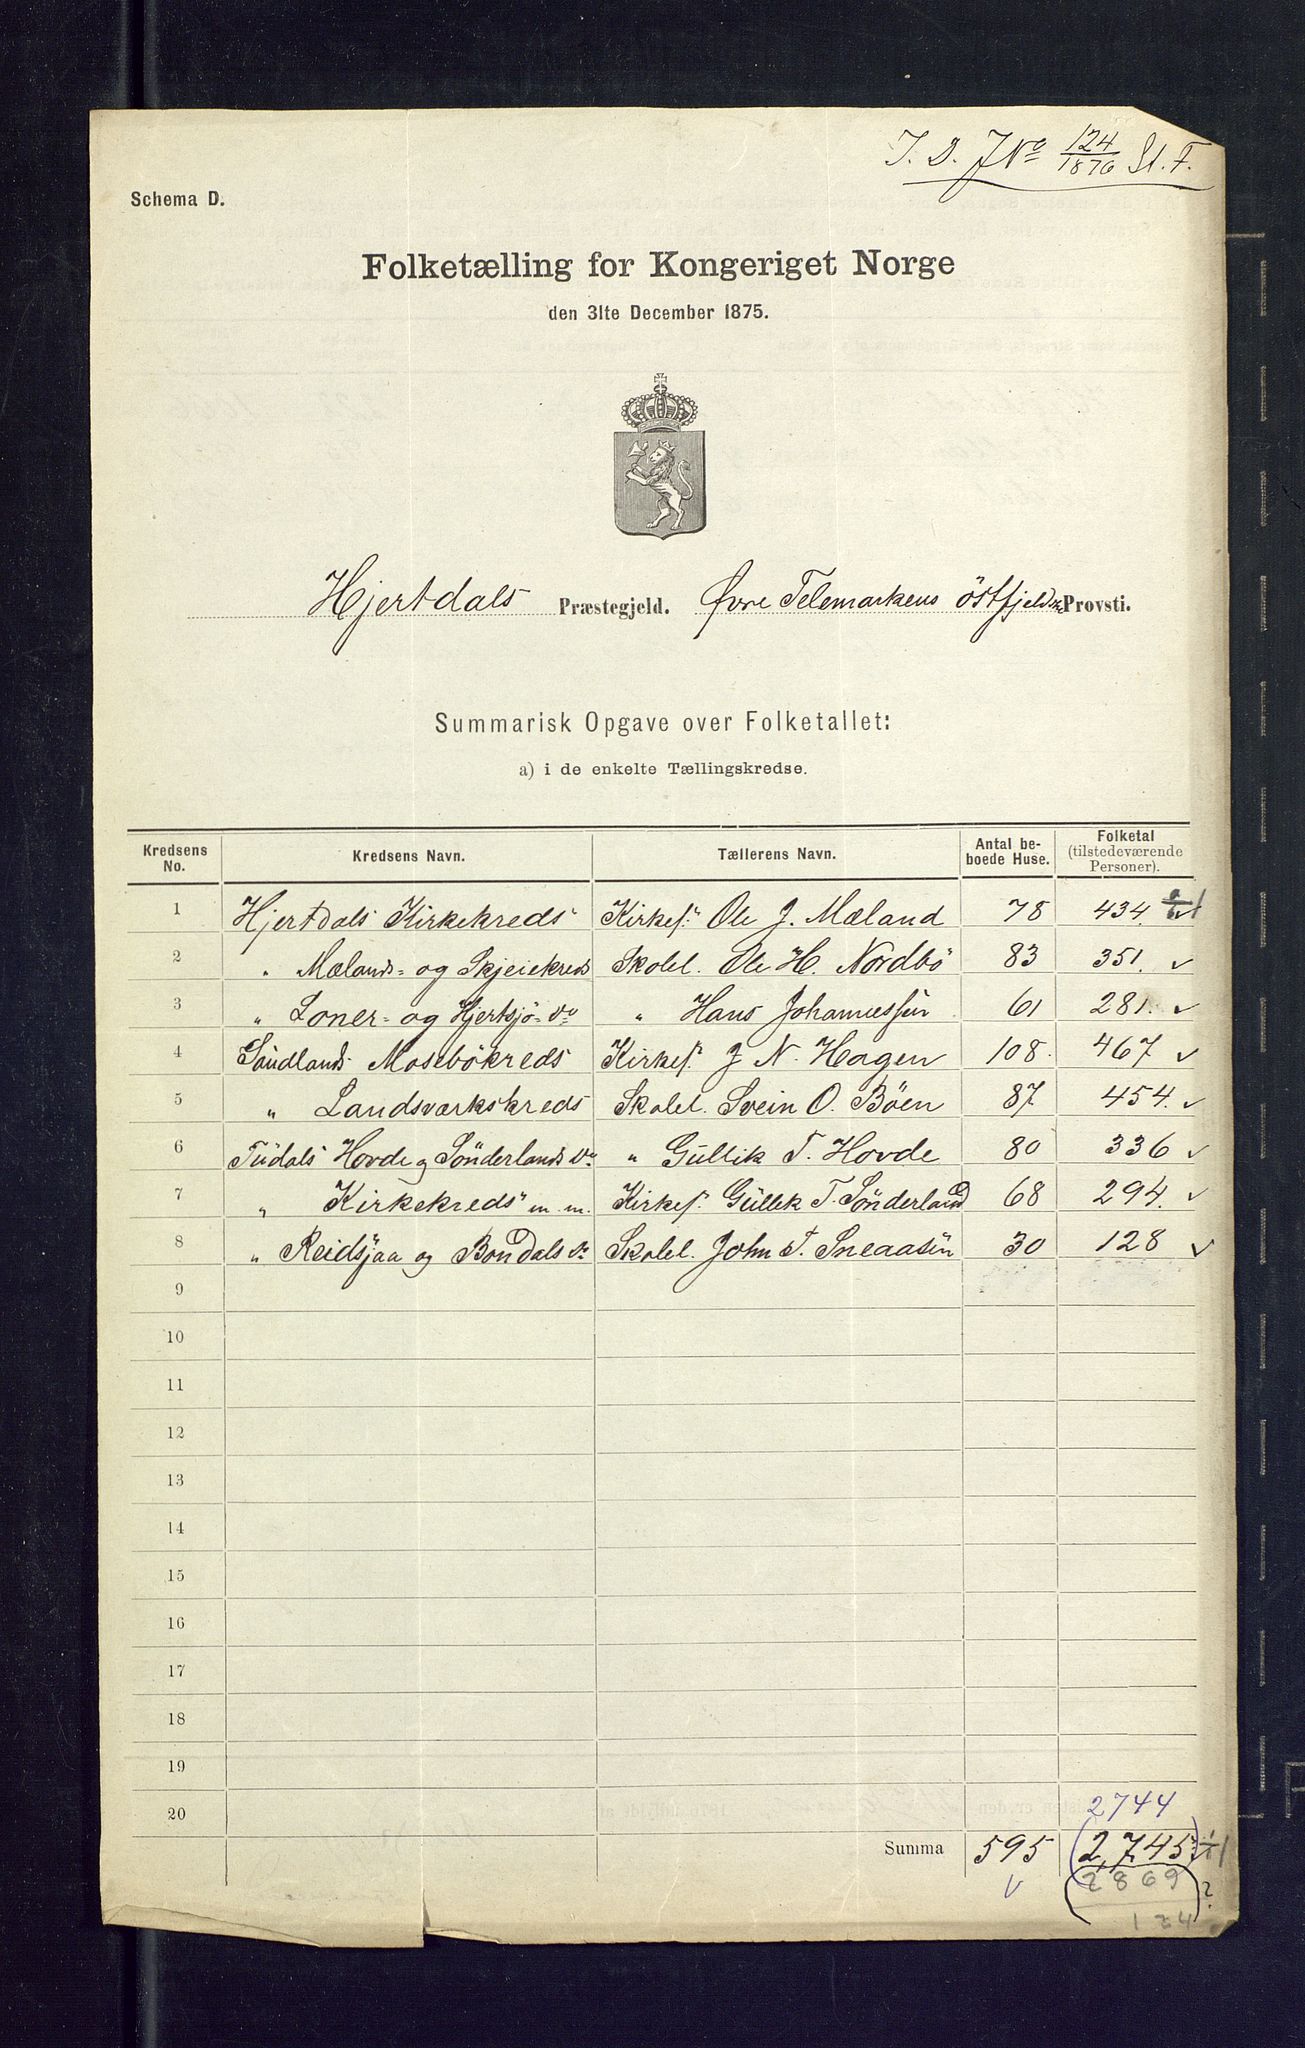 I. D. JNo 124/1876 St. F.
Schema D.
Folketælling for Kongeriget Norge
den 31te December 1875.
Hjertdals Præstegjeld. Øvre Telemarkens östfjeldske Provsti.
Summarisk Opgave over Folketallet:
a) i de enkelte Tællingskredse.
Kredsens No. Kredsens Navn. Tællerens Navn. Antal beboede Huse. Folketal (tilstedeværende Personer).
1 Hjertdals Kirkekreds Kirkes. Ole J. Mæland 78 434 ÷1
2 " Mælands- og Skjeiekreds Skolel. Ole H. Nordbö 83 351. ✓
3 " Loner- og Hjertsjö- do " Hans Johannessen 61 281. ✓
4 Saudlands Mosebökreds Kirkes. J N. Hagen 108. 467 ✓
5 " Landsværkskreds Skolel. Svein O. Böen 87 454. ✓
6 Tudals Hovde og Sönderlands do " Gullik T. Hovde 80 336 ✓
7 " Kirkekreds m. m. Kirkes. Gullek T. Sönderland 68 294. ✓
8 " Reidsjaa og Bondals do Skolel. John T. Sneaasen 30 128 ✓
9
10
11
12
13
14
15
16
17
18
19
20
2744
Summa 595 (2,745) ÷1
✓ (2869) ?
124